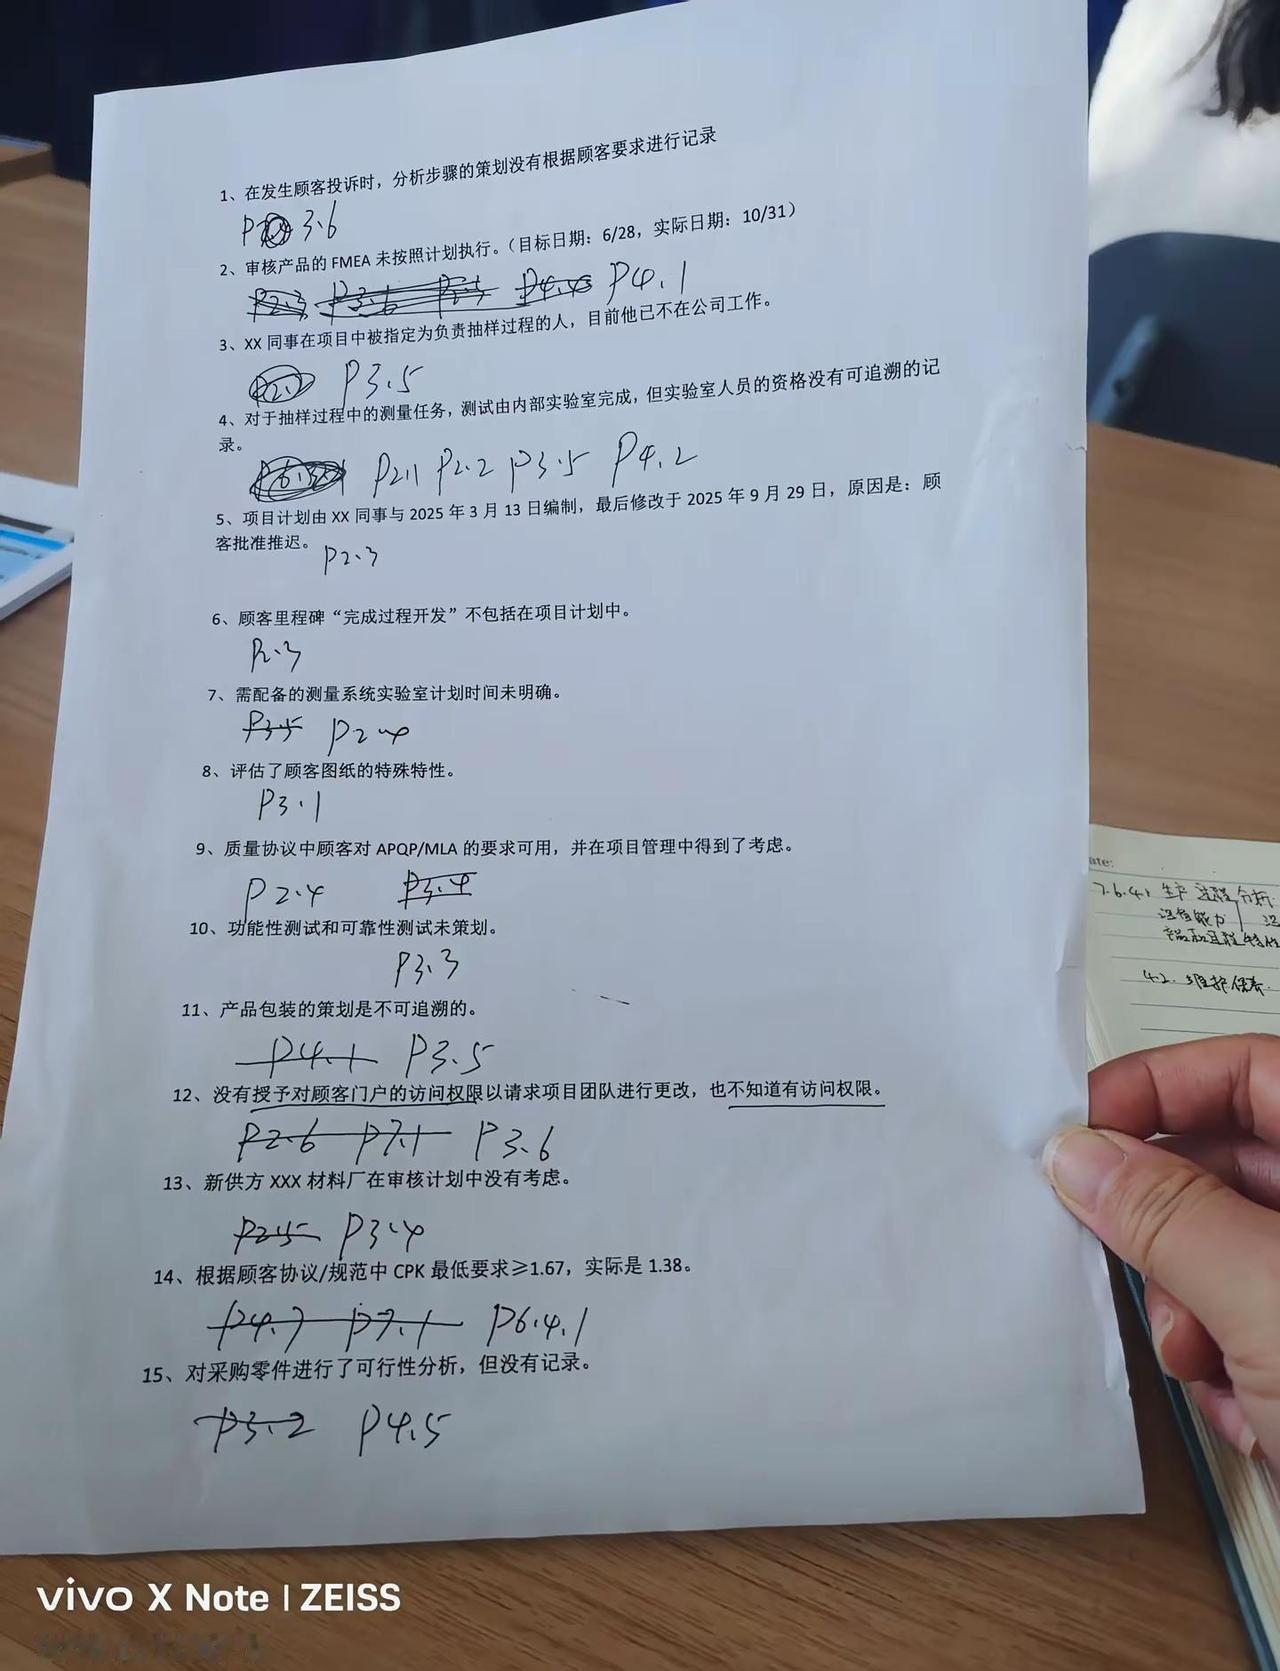 1、在发生顾客投诉时，分析步骤的策划没有根据顾客要求进行记录
P 3.6
2、审核产品的 FMEA 未按照计划执行。（目标日期：6/28，实际日期：10/31）
P2.3 P3.6 P2.3 P4.4 P4.1
3、XX 同事在项目中被指定为负责抽样过程的人，目前他已不在公司工作。
P2.2 P3.5
4、对于抽样过程中的测量任务，测试由内部实验室完成，但实验室人员的资格没有可追溯的记
录。
P2.1 P2.2 P3.5 P4.2
5、项目计划由 XX 同事与 2025 年 3 月 13 日编制，最后修改于 2025 年 9 月 29 日，原因是：顾
客批准推迟。
P2.3
6、顾客里程碑“完成过程开发”不包括在项目计划中。
P2.3
7、需配备的测量系统实验室计划时间未明确。
P3.5 P2.4
8、评估了顾客图纸的特殊特性。
P3.1
9、质量协议中顾客对 APQP/MLA 的要求可用，并在项目管理中得到了考虑。
P2.4 P3.4
10、功能性测试和可靠性测试未策划。
P3.3
11、产品包装的策划是不可追溯的。
P4.1 P3.5
12、没有授予对顾客门户的访问权限以请求项目团队进行更改，也不知道有访问权限。
P2.6 P7.1 P3.6
13、新供方 XXX 材料厂在审核计划中没有考虑。
P2.5 P3.4
14、根据顾客协议/规范中 CPK 最低要求≥1.67，实际是 1.38。
P4.7 P7.1 P6.4.1
15、对采购零件进行了可行性分析，但没有记录。
P3.2 P4.5
ate:
7.6.4.1 生产过程分析
过程能力
产品和过程特性
4.2. 维护保养
vivo X Note | ZEISS